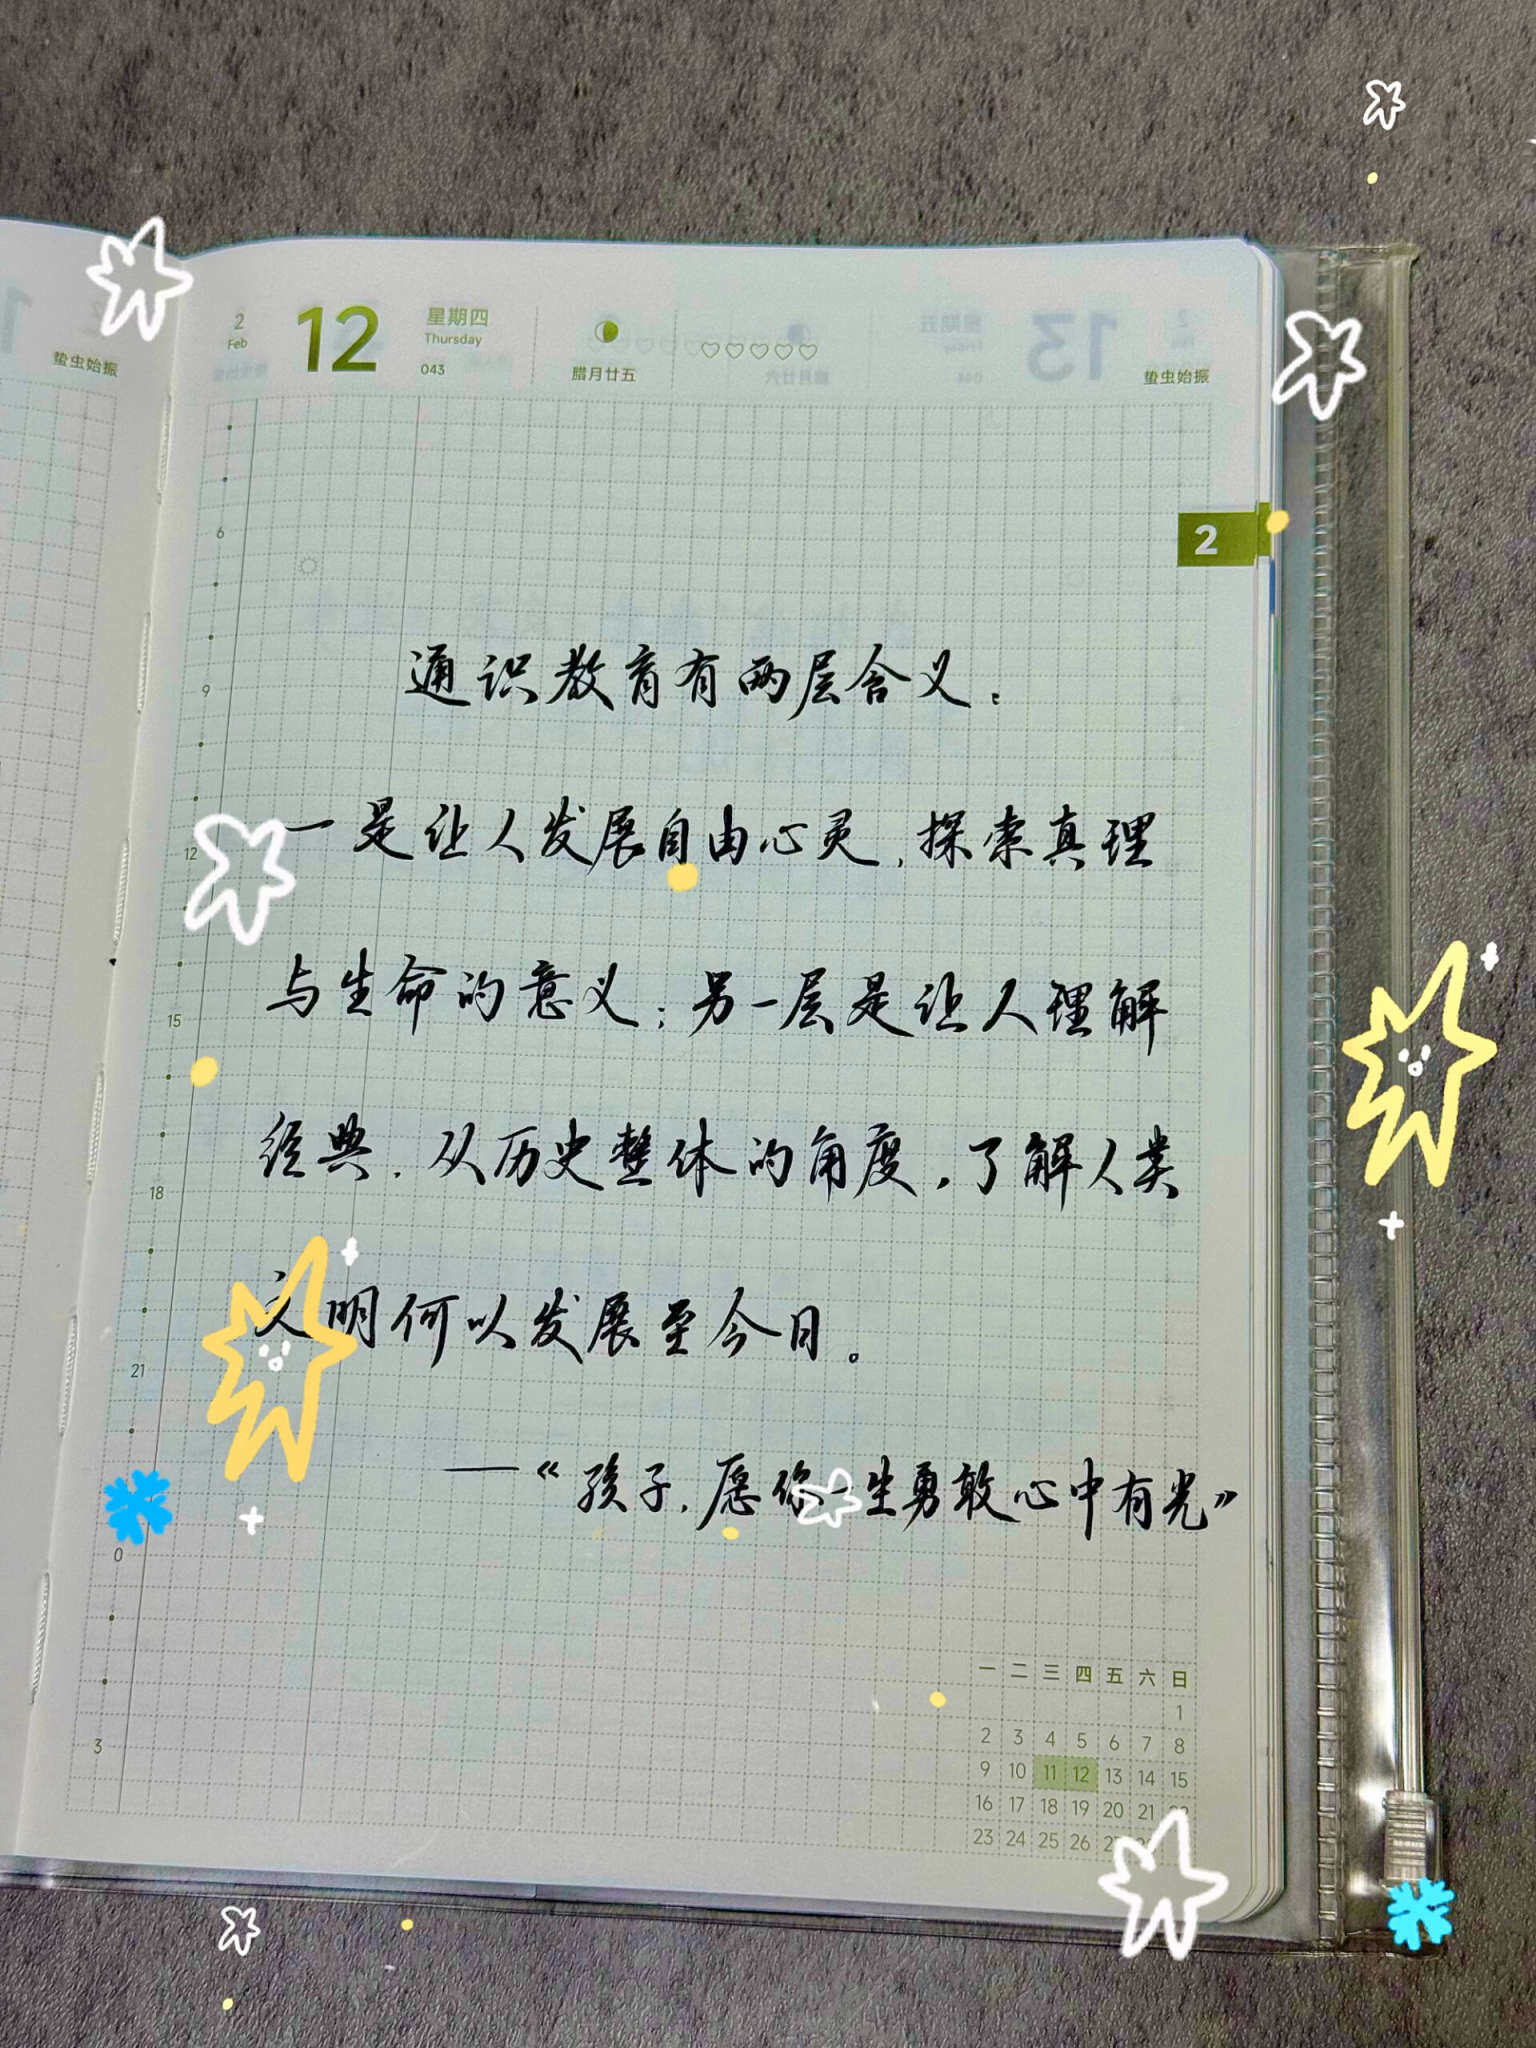 2
Feb
12
星期四
Thursday
043
腊月廿五
♡♡♡♡♡
蛰虫始振
蛰虫始振
2
6
9
12
15
18
21
0
3
通识教育有两层含义：
一是让人发展自由心灵，探索真理
与生命的意义；另一层是让人理解
经典，从历史整体的角度，了解人类
文明何以发展至今日。
——《孩子，愿你一生勇敢心中有光》
一 二 三 四 五 六 日
1
2 3 4 5 6 7 8
9 10 11 12 13 14 15
16 17 18 19 20 21
23 24 25 26